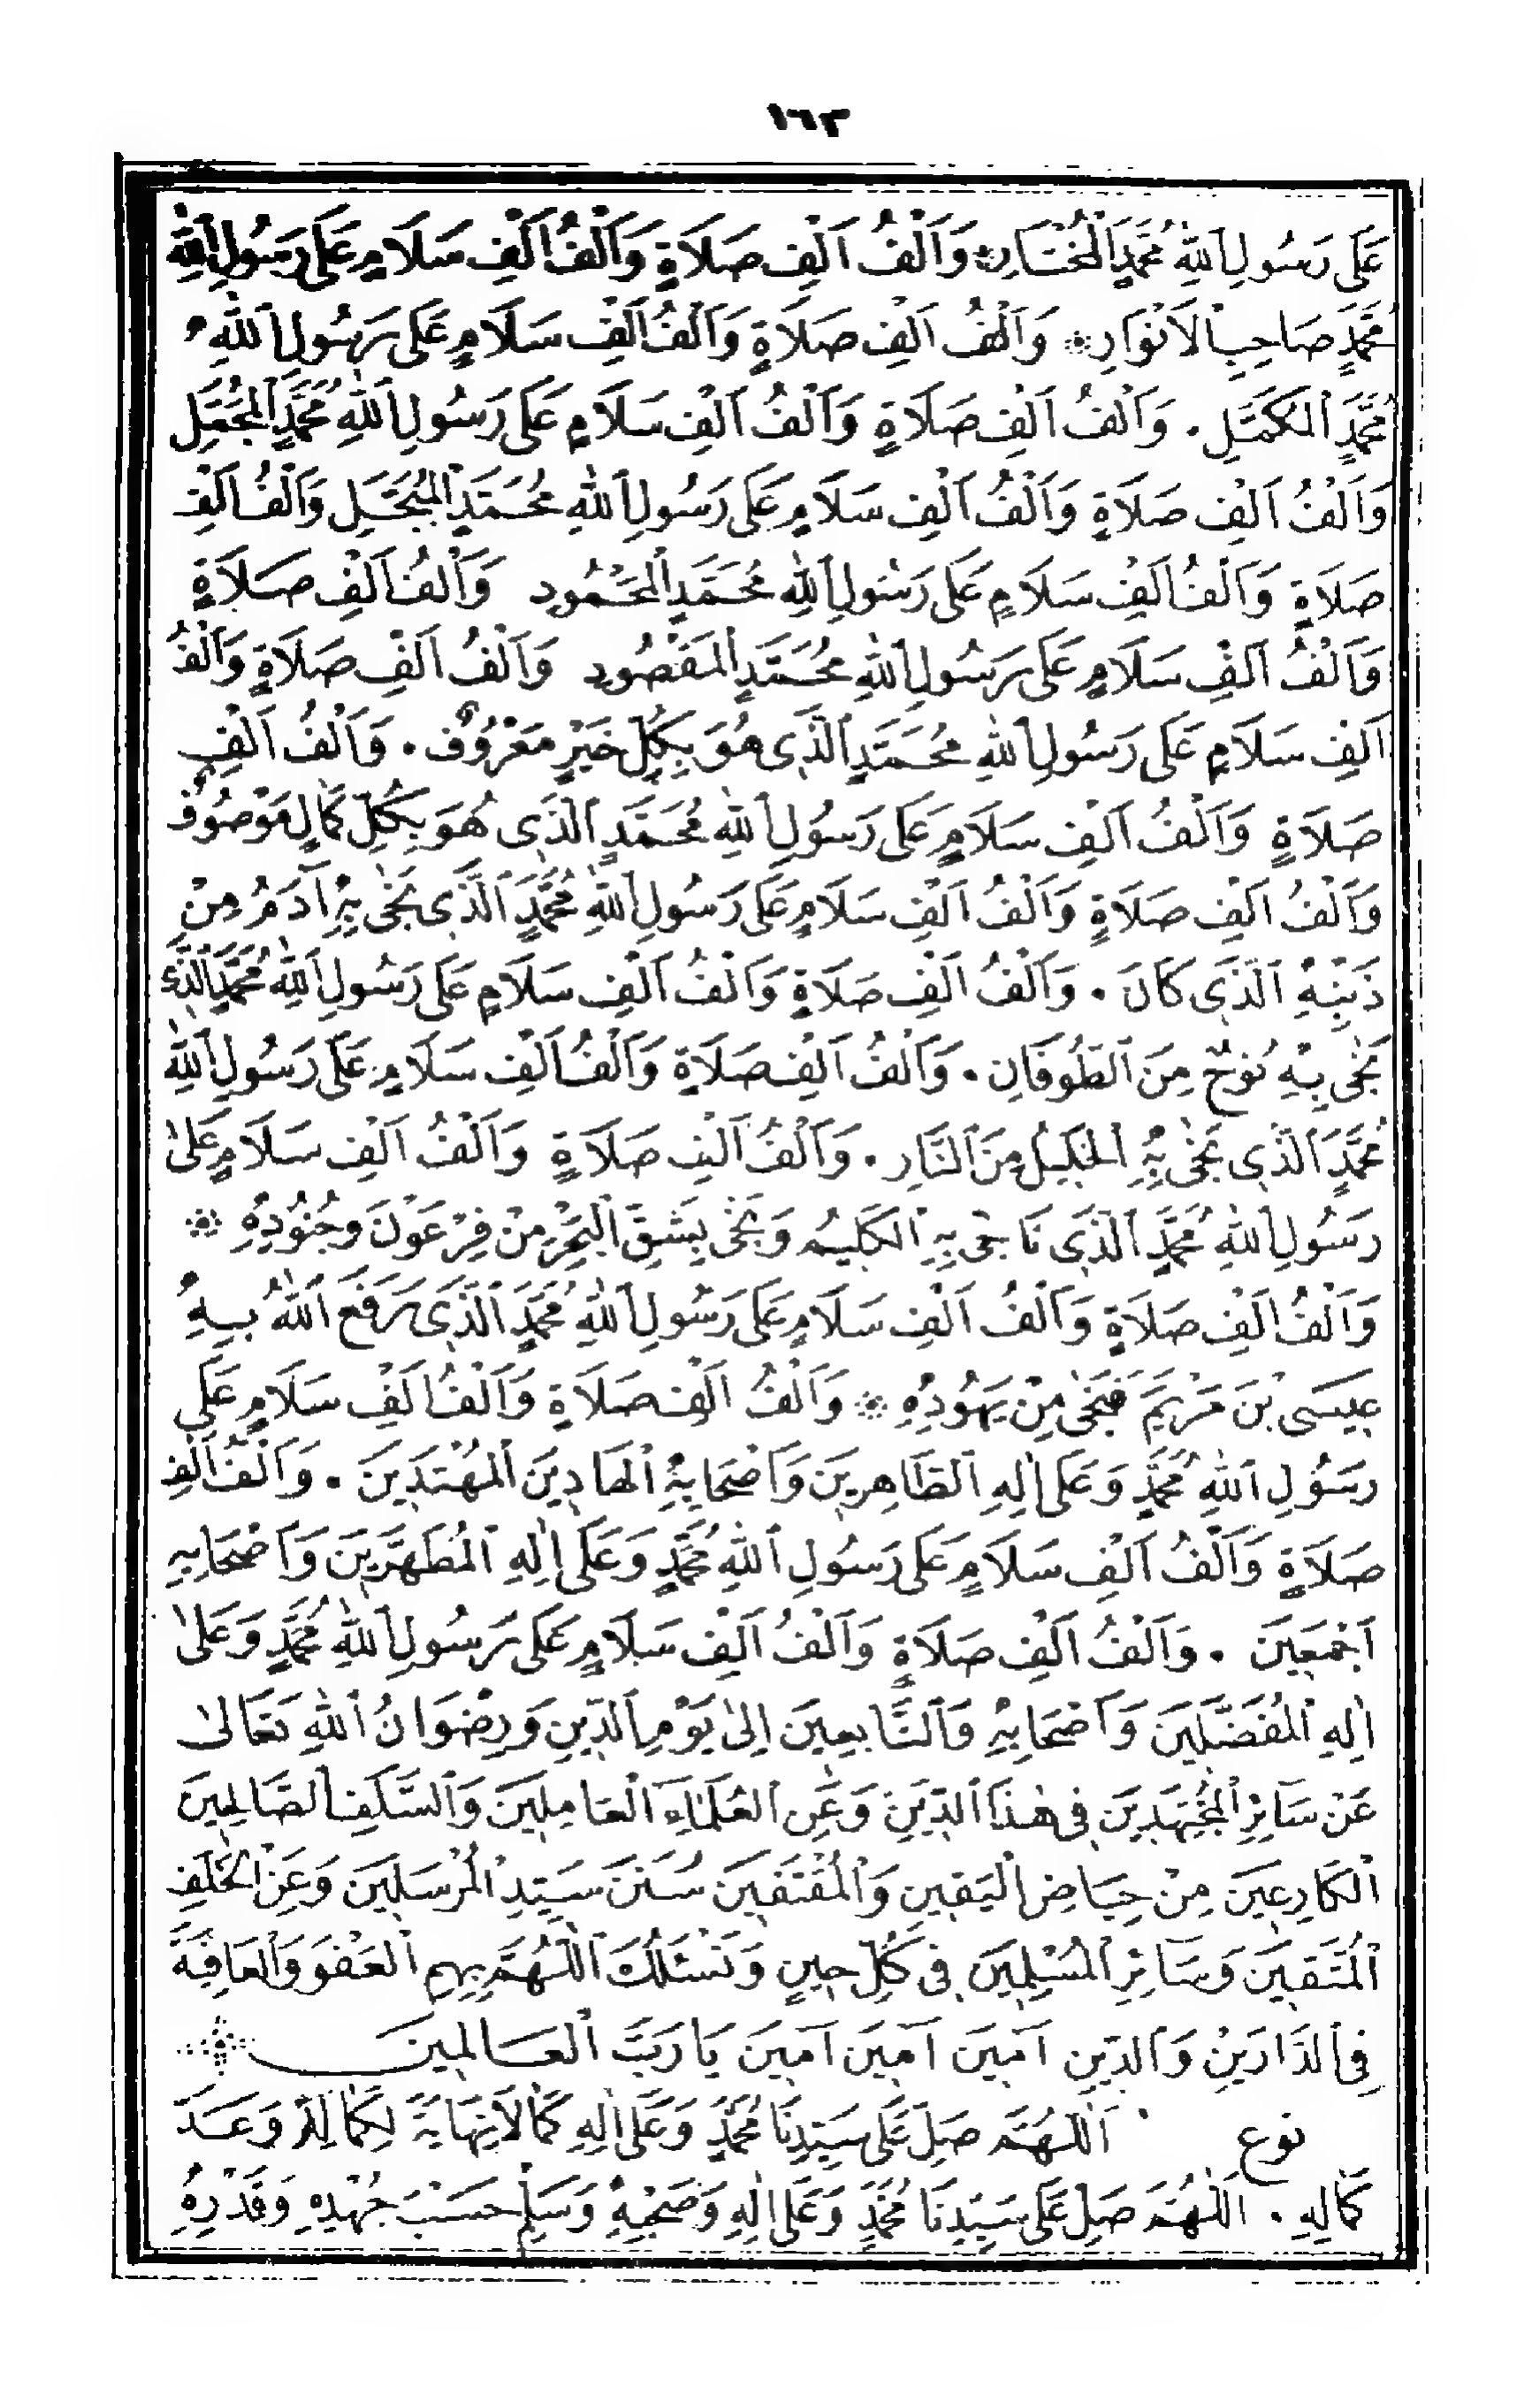 ١٦٢
عَلَى رَسُولِ اللهِ مُحَمَّدٍ الْمُخْتَارِ وَاَلْفُ اَلْفِ صَلَاةٍ وَاَلْفُ اَلْفِ سَلَامٍ عَلَى رَسُولِ اللهِ
مُحَمَّدٍ صَاحِبِ الْاَنْوَارِ وَاَلْفُ اَلْفِ صَلَاةٍ وَاَلْفُ اَلْفِ سَلَامٍ عَلَى رَسُولِ اللهِ
مُحَمَّدٍ الْمُكَمَّلِ . وَاَلْفُ اَلْفِ صَلَاةٍ وَاَلْفُ اَلْفِ سَلَامٍ عَلَى رَسُولِ اللهِ مُحَمَّدٍ الْمُجَمَّلِ
وَاَلْفُ اَلْفِ صَلَاةٍ وَاَلْفُ اَلْفِ سَلَامٍ عَلَى رَسُولِ اللهِ مُحَمَّدٍ الْمُبَجَّلِ وَاَلْفُ اَلْفِ
صَلَاةٍ وَاَلْفُ اَلْفِ سَلَامٍ عَلَى رَسُولِ اللهِ مُحَمَّدٍ الْمَحْمُودِ وَاَلْفُ اَلْفِ صَلَاةٍ
وَاَلْفُ اَلْفِ سَلَامٍ عَلَى رَسُولِ اللهِ مُحَمَّدٍ الْمَقْصُودِ وَاَلْفُ اَلْفِ صَلَاةٍ وَاَلْفُ
اَلْفِ سَلَامٍ عَلَى رَسُولِ اللهِ مُحَمَّدٍ الَّذِى هُوَ بِكُلِّ خَيْرٍ مَعْرُوفٌ . وَاَلْفُ اَلْفِ
صَلَاةٍ وَاَلْفُ اَلْفِ سَلَامٍ عَلَى رَسُولِ اللهِ مُحَمَّدٍ الَّذِى هُوَ بِكُلِّ كَمَالٍ مَوْصُوفٌ
وَاَلْفُ اَلْفِ صَلَاةٍ وَاَلْفُ اَلْفِ سَلَامٍ عَلَى رَسُولِ اللهِ مُحَمَّدٍ الَّذِى نَجٰى بِهِ آدَمُ مِنْ
ذَنْبِهِ الَّذِى كَانَ . وَاَلْفُ اَلْفِ صَلَاةٍ وَاَلْفُ اَلْفِ سَلَامٍ عَلَى رَسُولِ اللهِ مُحَمَّدٍ الَّذِى
نَجٰى بِهِ نُوحٌ مِنَ الطُّوفَانِ . وَاَلْفُ اَلْفِ صَلَاةٍ وَاَلْفُ اَلْفِ سَلَامٍ عَلَى رَسُولِ اللهِ
مُحَمَّدٍ الَّذِى نَجٰى بِهِ الْخَلِيلُ مِنَ النَّارِ . وَاَلْفُ اَلْفِ صَلَاةٍ وَاَلْفُ اَلْفِ سَلَامٍ عَلٰى
رَسُولِ اللهِ مُحَمَّدٍ الَّذِى نَاجٰى بِهِ الْكَلِيمُ وَنَجٰى بِشَقِّ الْبَحْرِ مِنْ فِرْعَوْنَ وَجُنُودِهِ
وَاَلْفُ اَلْفِ صَلَاةٍ وَاَلْفُ اَلْفِ سَلَامٍ عَلَى رَسُولِ اللهِ مُحَمَّدٍ الَّذِى رَفَعَ اللهُ بِهِ
عِيسَى بْنَ مَرْيَمَ فَنَجٰى مِنْ يَهُودِهِ وَاَلْفُ اَلْفِ صَلَاةٍ وَاَلْفُ اَلْفِ سَلَامٍ عَلَى
رَسُولِ اللهِ مُحَمَّدٍ وَعَلَى اٰلِهِ الطَّاهِرِينَ وَاَصْحَابِهِ الْهَادِينَ الْمُهْتَدِينَ . وَاَلْفُ اَلْفِ
صَلَاةٍ وَاَلْفُ اَلْفِ سَلَامٍ عَلَى رَسُولِ اللهِ مُحَمَّدٍ وَعَلَى اٰلِهِ الْمُطَهَّرِينَ وَاَصْحَابِهِ
اَجْمَعِينَ . وَاَلْفُ اَلْفِ صَلَاةٍ وَاَلْفُ اَلْفِ سَلَامٍ عَلَى رَسُولِ اللهِ مُحَمَّدٍ وَعَلٰى
اٰلِهِ الْمُفَضَّلِينَ وَاَصْحَابِهِ وَالتَّابِعِينَ اِلٰى يَوْمِ الدِّينِ وَرِضْوَانُ اللهِ تَعَالٰى
عَنْ سَائِرِ الْمُجْتَهِدِينَ فِى هٰذَا الدِّينِ وَعَنِ الْعُلَمَاءِ الْعَامِلِينَ وَالسَّلَفِ الصَّالِحِينَ
الْكَارِعِينَ مِنْ حِيَاضِ الْيَقِينِ وَالْمُقْتَفِينَ سُنَنَ سَيِّدِ الْمُرْسَلِينَ وَعَنِ الْخَلَفِ
الْمُتَّقِينَ وَسَائِرِ الْمُسْلِمِينَ فِى كُلِّ حِينٍ وَنَسْئَلُكَ اللّٰهُمَّ بِهِمِ الْعَفْوَ وَالْعَافِيَةَ
فِى الدَّارَيْنِ وَالدِّينِ آمِينَ آمِينَ آمِينَ يَا رَبَّ الْعَالَمِينَ
نوع اَللّٰهُمَّ صَلِّ عَلَى سَيِّدِنَا مُحَمَّدٍ وَعَلَى اٰلِهِ كَمَا لَا نِهَايَةَ لِكَمَالِكَ وَعَدَ
كَمَالِهِ . اَللّٰهُمَّ صَلِّ عَلَى سَيِّدِنَا مُحَمَّدٍ وَعَلَى اٰلِهِ وَصَحْبِهِ وَسَلِّمْ حَسَبَ جُهْدِهِ وَقَدْرِهِ